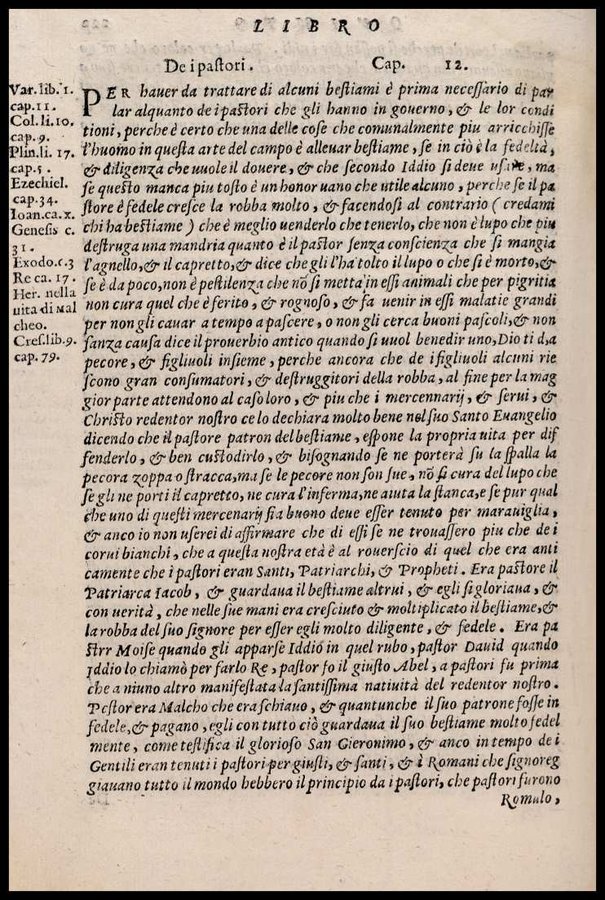 LIBRO
De i pastori. Cap. 12.
Var. lib. 1.
cap. 11.
Col. li. 10.
cap. 9.
Plin. li. 17.
cap. 5.
Ezechiel.
cap. 34.
Ioan. ca. x.
Genesis c.
31.
Exodo. c. 3
Re ca. 17.
Her. nella
uita di Mal
cheo.
Cres. lib. 9.
cap. 79.
PER hauer da trattare di alcuni bestiami è prima necessario di par
lar alquanto de i pastori che gli hanno in gouerno, & le lor condi
tioni, perche è certo che una delle cose che comunalmente piu arricchisse
l'huomo in questa arte del campo è alleuar bestiame, se in ciò è la fedeltà,
& diligenza che uuole il douere, & che secondo Iddio si deue usare, ma
se questo manca piu tosto è un honor uano che utile alcuno, perche se il pa
store è fedele cresce la robba molto, & facendosi al contrario (credami
chi ha bestiame) che è meglio uenderlo che tenerlo, che non è lupo che piu
destruga una mandria quanto è il pastor senza conscienza che si mangia
l'agnello, & il capretto, & dice che gli l'ha tolto il lupo o che si è morto, &
se è da poco, non è pestidenza che nõ si metta in essi animali che per pigritia
non cura quel che è ferito, & rognoso, & fa uenir in essi malatie grandi
per non gli cauar a tempo a pascere, o non gli cerca buoni pascoli, & non
sanza causa dice il prouerbio antico quando si uuol benedir uno, Dio ti dia
pecore, & figliuoli insieme, perche ancora che de i figliuoli alcuni rie
scono gran consumatori, & destruggitori della robba, al fine per la mag
gior parte attendono al caso loro, & piu che i mercennarij, & serui, &
Christo redentor nostro ce lo dechiara molto bene nel suo Santo Euangelio
dicendo che il pastore patron del bestiame, espone la propria uita per dif
fenderlo, & ben custodirlo, & bisognando se ne porterà su la spalla la
pecora zoppa o stracca, ma se le pecore non son sue, nõ si cura del lupo che
se gli ne porti il capretto, ne cura l'inferma, ne aiuta la stanca, e se pur qual
che uno di questi mercenarij sia buono deue esser tenuto per marauiglia,
& anco io non userei di affirmare che di essi se ne trouassero piu che de i
corui bianchi, che a questa nostra età è al rouerscio di quel che era anti
camente che i pastori eran Santi, Patriarchi, & Propheti. Era pastore il
Patriarca Iacob, & guardaua il bestiame altrui, & egli si gloriaua, &
con uerità, che nelle sue mani era cresciuto & moltiplicato il bestiame, &
la robba del suo signore per esser egli molto diligente, & fedele. Era pa
strr Moise quando gli apparse Iddio in quel rubo, pastor Dauid quando
Iddio lo chiamò per farlo Re, pastor fo il giusto Abel, a pastori fu prima
che a niuno altro manifestata la santissima natiuità del redentor nostro.
Pestor era Malcho che era schiauo, & quantunche il suo patrone fosse in
fedele, & pagano, egli con tutto ciò guardaua il suo bestiame molto fedel
mente, come testifica il glorioso San Gieronimo, & anco in tempo de i
Gentili eran tenuti i pastori per giusti, & santi, & i Romani che signoreg
giauano tutto il mondo hebbero il principio da i pastori, che pastori furono
Romulo,